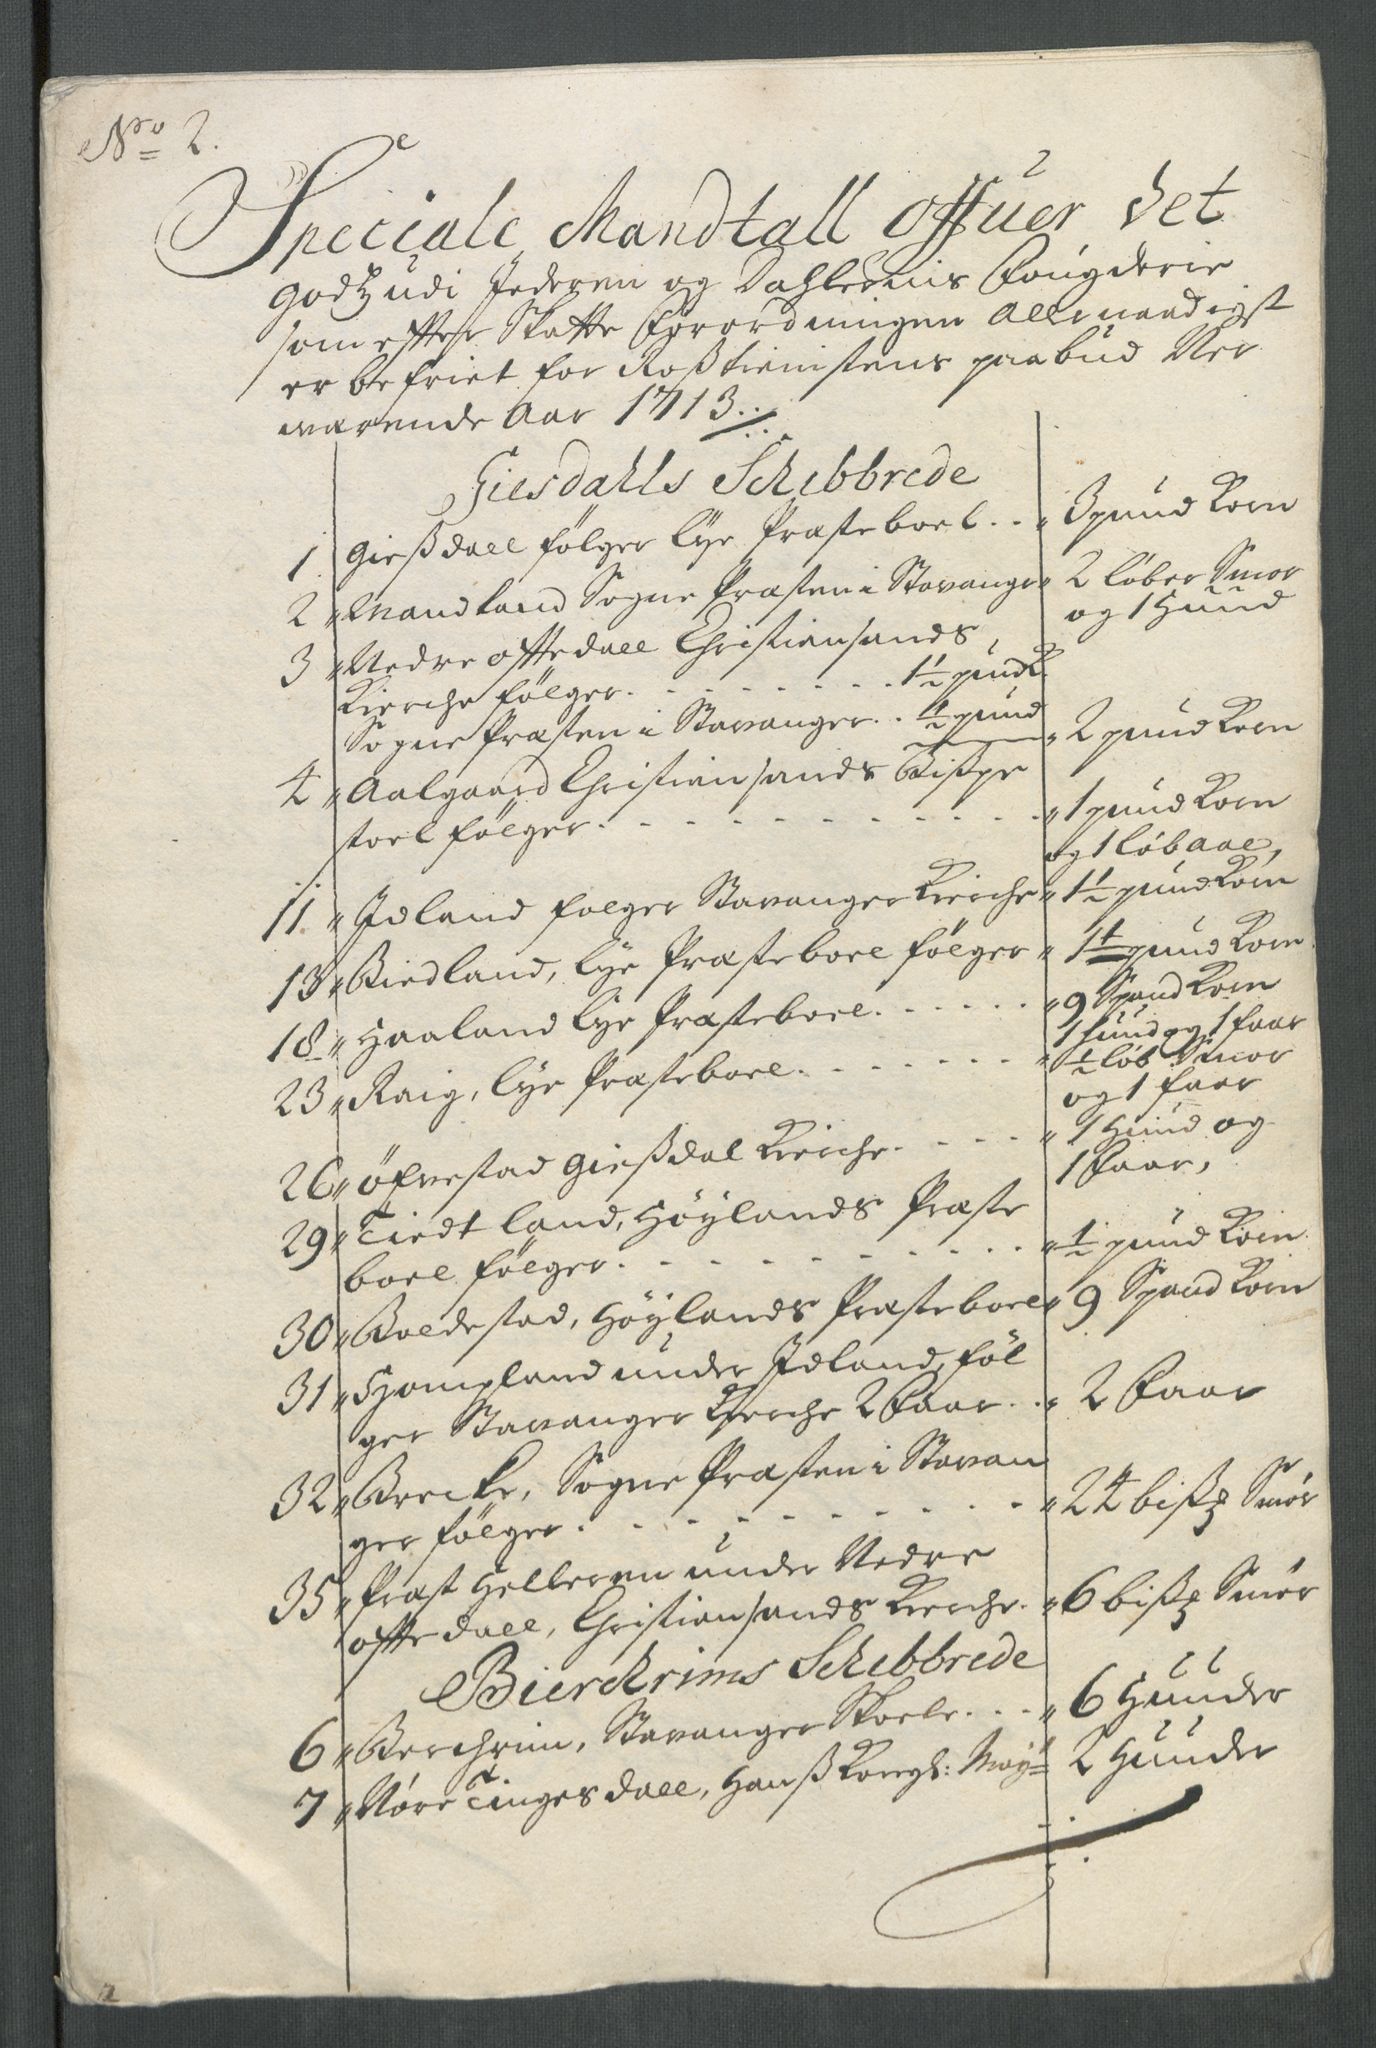 No 2.
Speciale Mandtall offuer det
godtz udi Jederen og Dahlernis Fougderie
som efter Skatte Forordningen Allernaadigst
er befriet for Roßtienistens paabud Ner
værende Aar 1713
Giesdahls Schibbrede
1. Gießdall følger Lye Præsteboel . . 3 pund Korn
2 Madland Sogne Præsten i Stavanger 2 løber Smør
og 1 Huud
3 Nedre Offtedall Christiansands
Kierche følger . . . 1½ pund K.
Sogne Præsten i Stavanger . . ½ pund 2 pund Korn
4 Aalgaard Christiansands Bispe
stoel følger . . . 1 pund Korn
og 1 løb Aal
11. Idland følger Stavanger Kierche 1½ pund Korn
13 Birdland, Lye Præsteboel følger 1½ pund Korn
18 Haaland Lye Præsteboel . . . 9 Spand Korn
1 Huud og 1 faar
23 Raig, Lye Præsteboel . . . ½ løb Smør
og 1 faar
26 Øfvestad Gießdal Kirche . . . 1 Huud og
1 Faar,
29 Tiedtland, Høylands Præste
boel følger . . . ½ pund Korn
30 Boldestad, Høylands Præsteboel 9 Spand Korn
31 Hompland under Idland, føl
ger Stavanger Kierche 2 Faar . . 2 Faar
32 Brecke, Sogne Præsten i Stavan
ger følger . . . 24 bißtz Smør
35 Præst Helleren under Nedre
Offtedall, Christiansands Kierche . 6 bißtz Smør
Bierchrims Schibbrede
6 Berchrim, Stavanger Skoele . . . 6 Huuder
7 Nøre Tingesdall, Hanß Kongl: May 2 Huuder